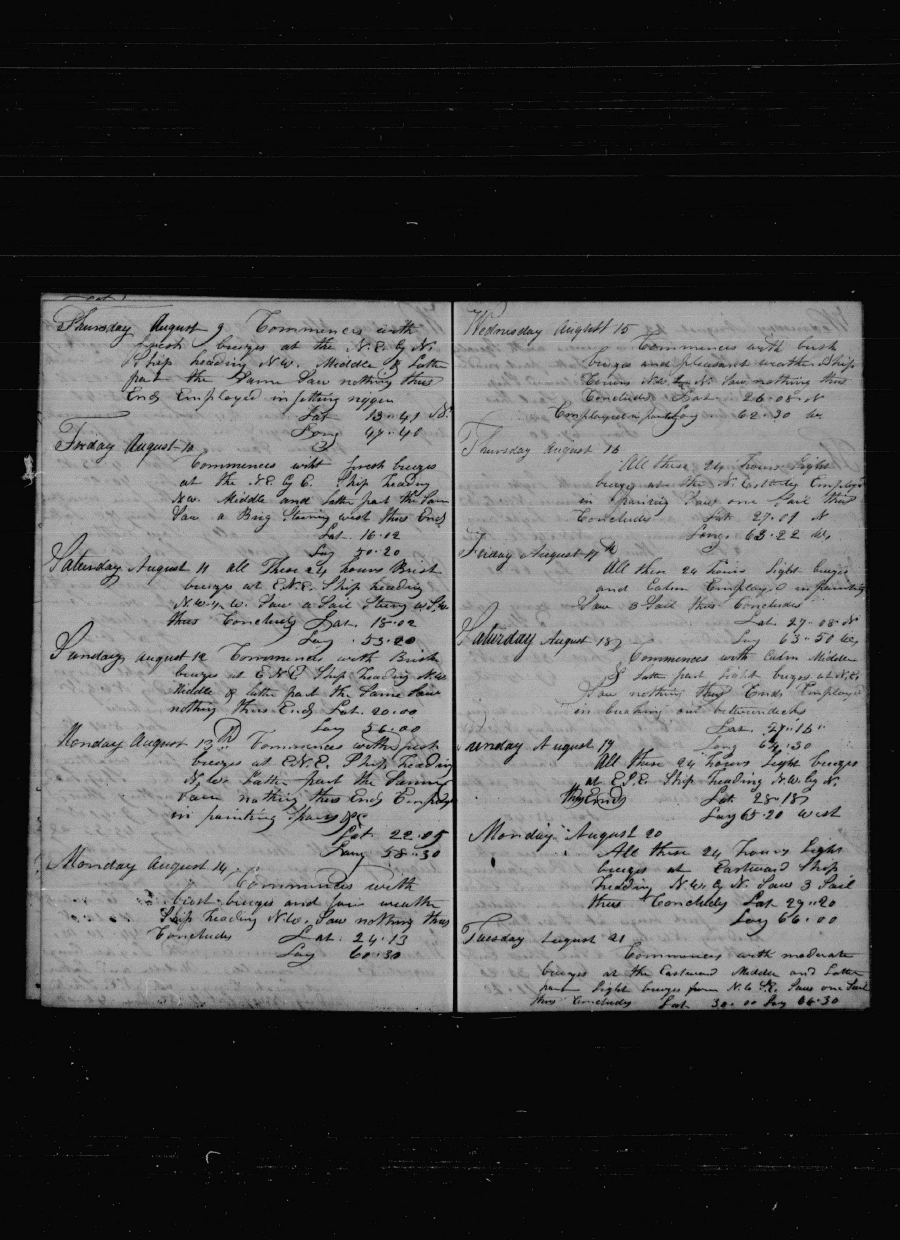 Thursday August 9 Commences with
fresh breezes at the N.E. by N.
Ship heading N.W. Middle & Latter
part the Same Saw nothing thus
Ends Employed in fitting
Lat 13..41 N.
Long 47..40
Friday August 10
Commences with fresh breezes
at the N.E. by E. Ship heading
N.W. Middle and Latter part the Same
Saw a Brig Steering west thus Ends
Lat. 16..02
Long 50..20
Saturday August 11 all These 24 hours Brisk
breezes at E.N.E. Ship heading
N.W. by W. Saw a Sail Stering
thus Concludes Lat. 18..02
Long . 53..20
Sunday august 12 Commences with Brisk
breezes at E N E Ship heading N.W.
Middle & latter part the Same Saw
nothing thus Ends Lat. 20..00
Long 56..00
Monday August 13th Commences with
breezes at E.N.E. Ship heading
N.W. Latter part the Same
Saw nothing thus Ends Employed
in painting Spars &c
Lat 22..05
Long 58..30
Monday August 14
Commences with
breezes and fair weather
Ship heading N.W. Saw nothing thus
Concludes Lat. 24..13
Long 60..30
Wednesday august 15
Commences with
breezes and pleasant weather Ship
N.W. by N. Saw nothing thus
Concludes Lat. 26..08 N
Employed in Long. 62..30 W
Thursday august 16
All these 24 hours light
breezes at the N. Easterly Employed
in Saw one Sail thus
Concludes Lat. 27..01 N
Long. 63..22 W
Friday August 17th
All these 24 hours light breezes
and Calm Employed in painting
Saw 3 Sail thus Concludes
Lat. 27..08 N
Long 63..50 W
Saturday August 18
Commences with Calm Middle
& Latter part light breezes at N.E.
Saw nothing thus Ends Employed
in breaking out betweendecks
Lat. 27..15
Long 64..30
Sunday August 19
All these 24 hours light breezes
at E.S.E. Ship heading N.W. by N.
thus Ends Lat. 28..18
Long 65..20 West
Monday August 20
All these 24 hours light
breezes at Eastward Ship
heading N.W. by N. Saw 3 Sail
thus Concludes Lat 29..20
Long 66..00
Tuesday August 21
Commences with moderate
breezes at the Eastward Middle and Latter
part light breezes from Saw one Sail
thus Concludes Lat 30..00 Long 66..30